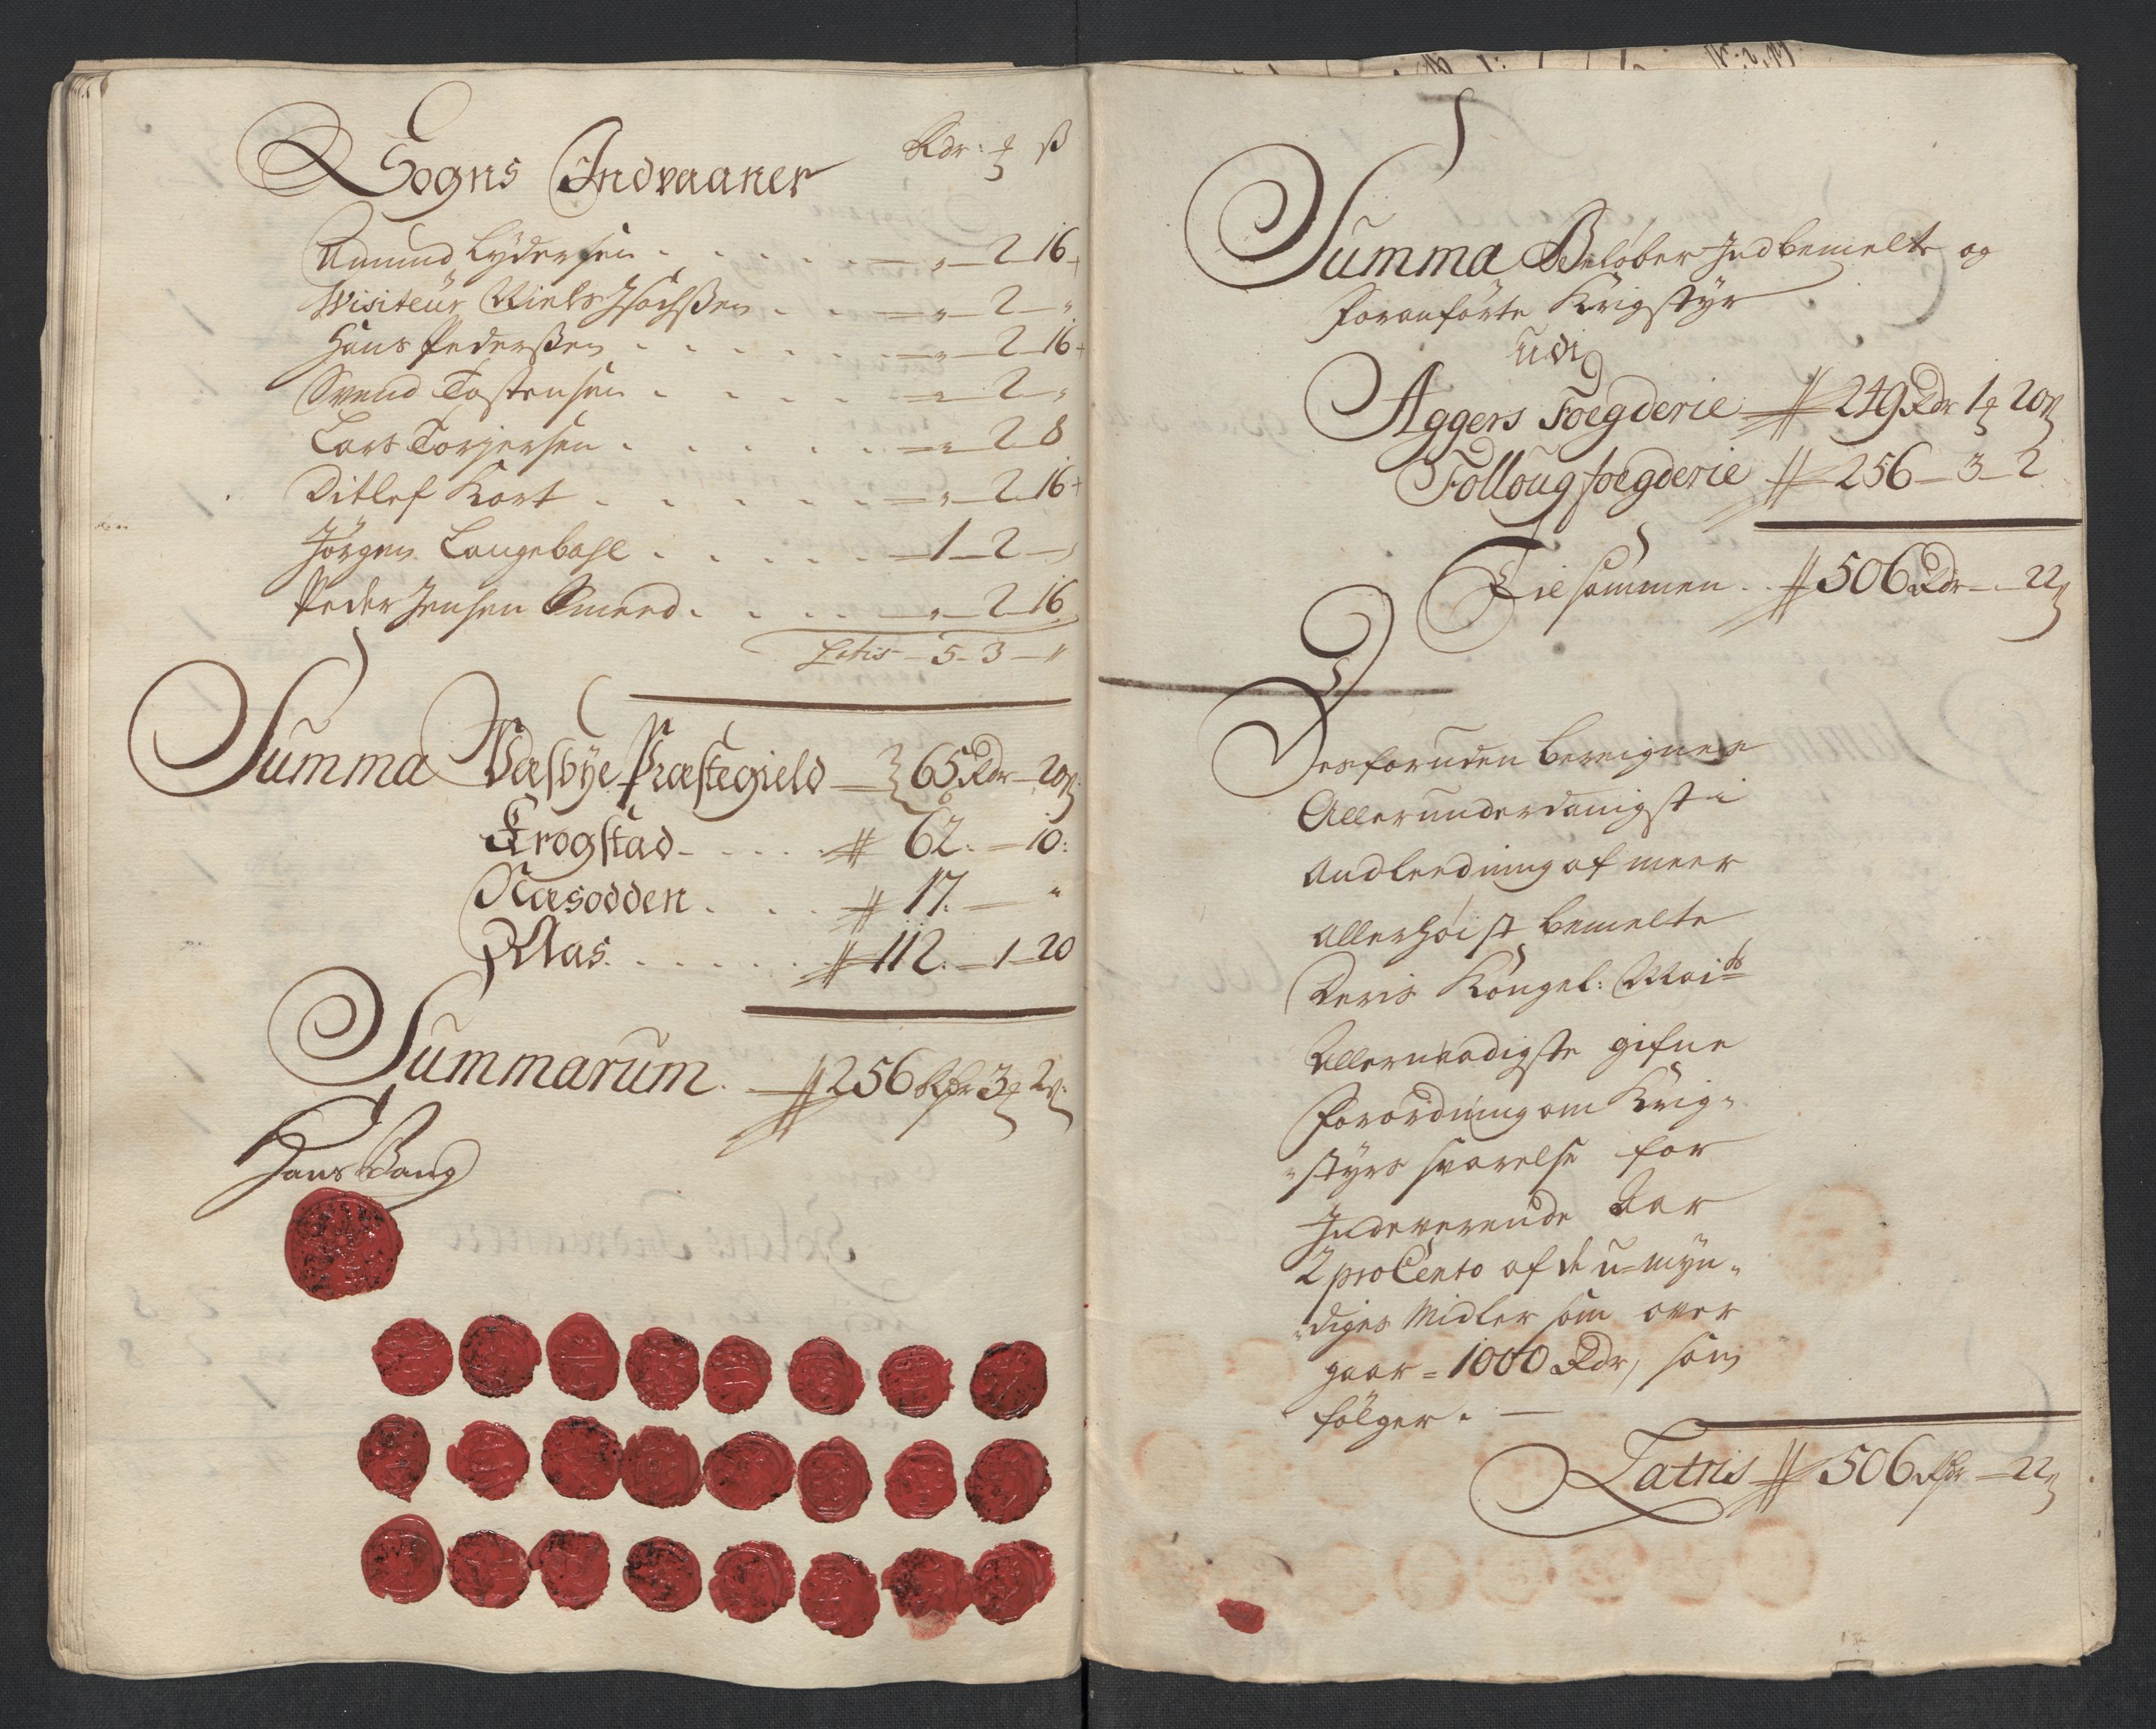 Sogns Indvaaner
Rdr: ꝛ ß
Amund Lydersen . . . . . — „ — 2 16
Visiteur Niels Isachßen . . = „ — 2 — „
Hans Pederßen . . . . . = „ — 2 16
Svend Tostensen . . . . = „ 2 — „
Lars Torgersen . . . . . = „ 2 8
Ditlef Kort . . . . . = „ — 2 16
Jörgen Langebahl . . . . — 1 — 2 — „
Peder Jensen Smeed . . . . „ — 2 16
Latris — 5 — 3 — „
Summa Wæsbye Præstegield — 65 Rdr — 20ß
Krogstad — . . . . # 62. — 10:
Næsodden . . . # 17. — „
Aas . . . . . . # 112. — 1 — 20
Summarum . — # 256 Rdr 3 2ß:
Hans Bang
Summa Beløber Indbemelte og
foranførte Krigstyr
udi
Aggers Foegderie # 249 Rdr 1 20ß
Follougfoegderie # 256 — 3 — 2
Tilsammen . . # 506 Rdr — „ 22ß
Desforuden bereignes
Allerunderdanigst i
Andleedning af meer
allerhøist bemelte
Deris Kongel: Maits
Allernaadigste gifne
Forordning om Krig„
„styrs svarelse for
Indeverende Aar
2 pro Cento af de u-myn„
„diges Midler som over
gaar = 1000 Rdr, som
følger . —
Latris # 506 Rdr — 22ß